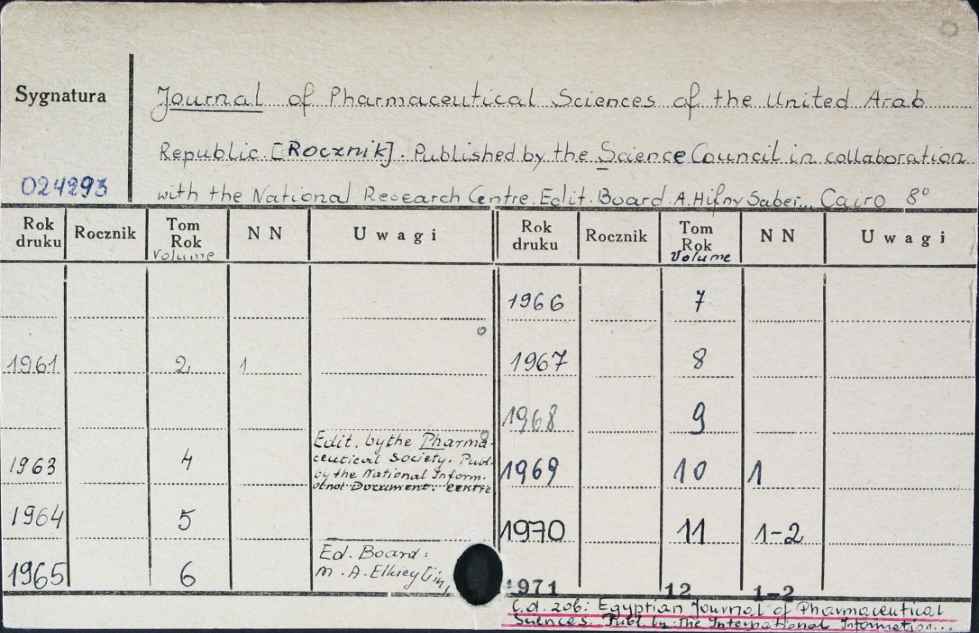 Sygnatura
Journal of Pharmaceutical Sciences of the United Arab
Republic [Rocznik]. Published by the Science Council in collaboration
024293
with the National Research Centre. Edit. Board A. Hifny Saber... Cairo 8°
Rok druku Rocznik Tom Rok Volume N N Uwagi Rok druku Rocznik Tom Rok Volume N N Uwagi
1966 7
1961 2 1
1967 8
1968 9
1963 4 Edit. by the Pharma-
ceutical Society. Publ.
by the National Inform.
Document. centre
1969 10 1
1964 5
1970 11 1-2
1965 6 Ed. Board:
M. A.
1971 12 1-2
C.d. 206: Egyptian Journal of Pharmaceutical
Sciences. Publ. by the International Information...